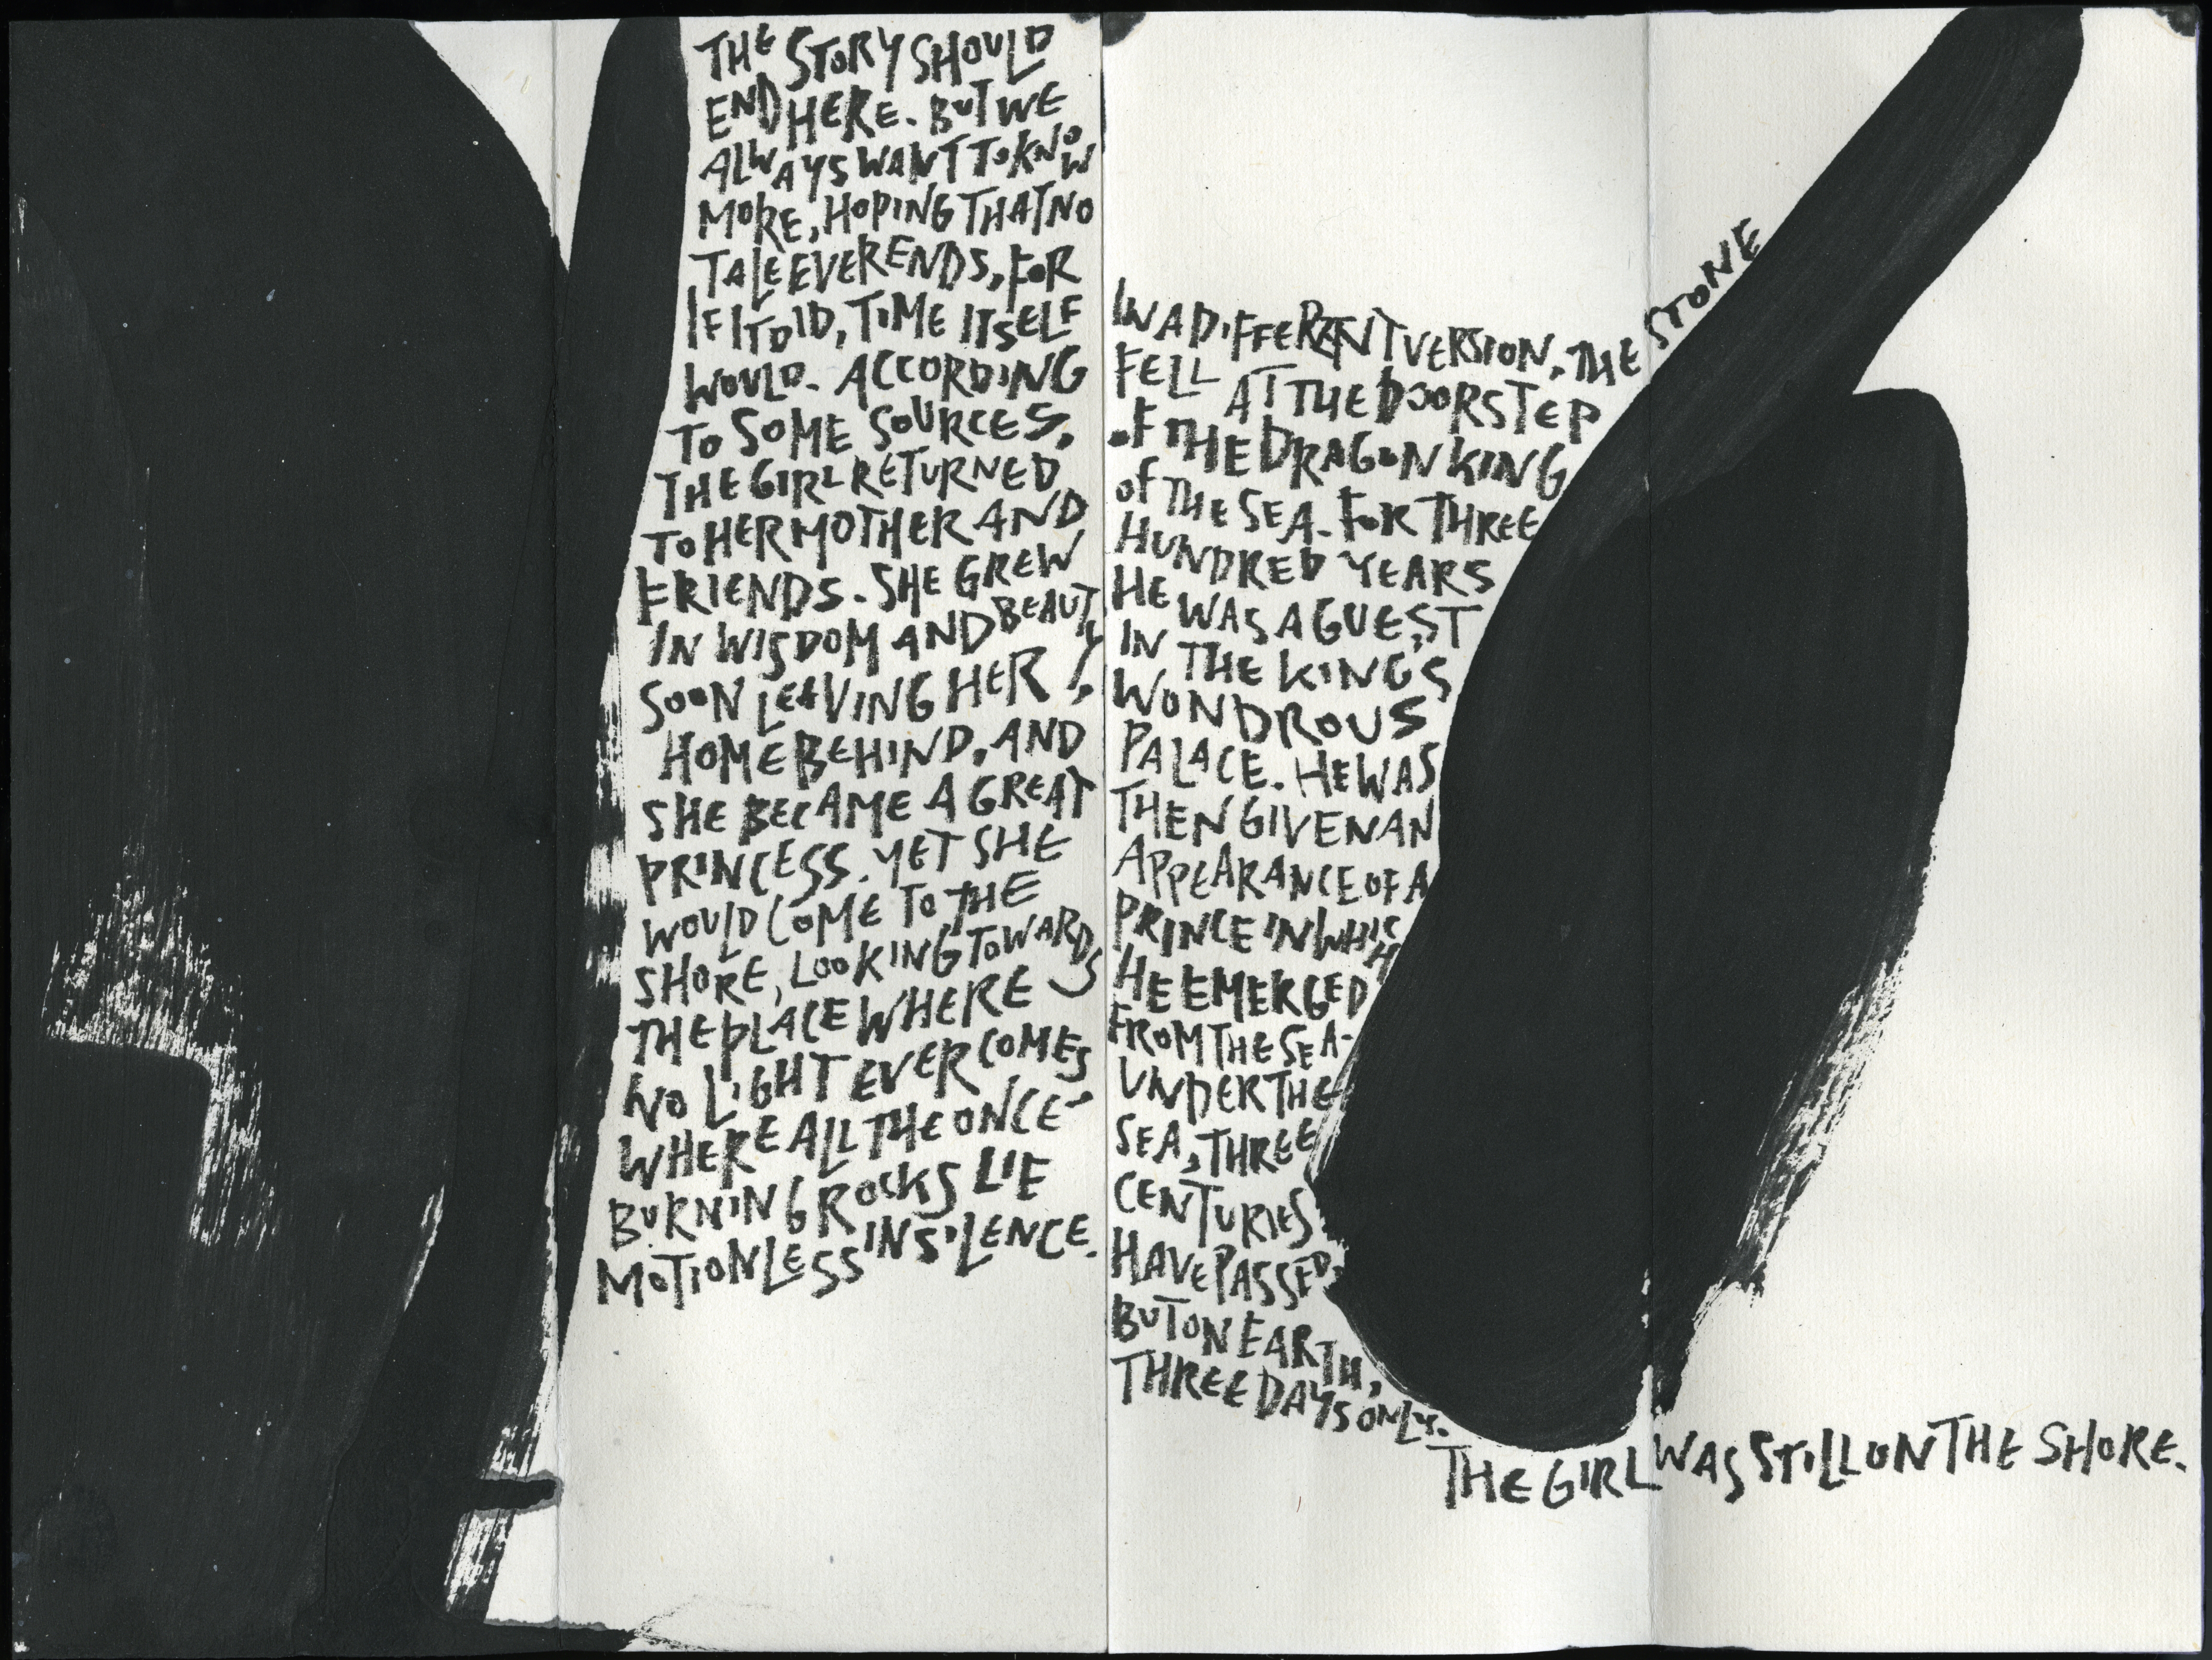 THE STORY SHOULD
END HERE. BUT WE
ALWAYS WANT TO KNOW
MORE, HOPING THAT NO
TALE EVER ENDS, FOR
IF IT DID, TIME ITSELF
WOULD. ACCORDING
TO SOME SOURCES,
THE GIRL RETURNED
TO HER MOTHER AND
FRIENDS. SHE GREW
IN WISDOM AND BEAUTY,
SOON LEAVING HER
HOME BEHIND, AND
SHE BECAME A GREAT
PRINCESS. YET SHE
WOULD COME TO THE
SHORE, LOOKING TOWARDS
THE PLACE WHERE
NO LIGHT EVER COMES
WHERE ALL THE ONCE-
BURNING ROCKS LIE
MOTIONLESS IN SILENCE.
IN A DIFFERENT VERSION, THE STONE
FELL AT THE DOORSTEP
OF THE DRAGON KING
OF THE SEA. FOR THREE
HUNDRED YEARS
HE WAS A GUEST
IN THE KING'S
WONDROUS
PALACE. HE WAS
THEN GIVEN AN
APPEARANCE OF A
PRINCE IN WHICH
HE EMERGED
FROM THE SEA-
UNDER THE
SEA, THREE
CENTURIES
HAVE PASSED,
BUT ON EARTH,
THREE DAYS ONLY.
THE GIRL WAS STILL ON THE SHORE.